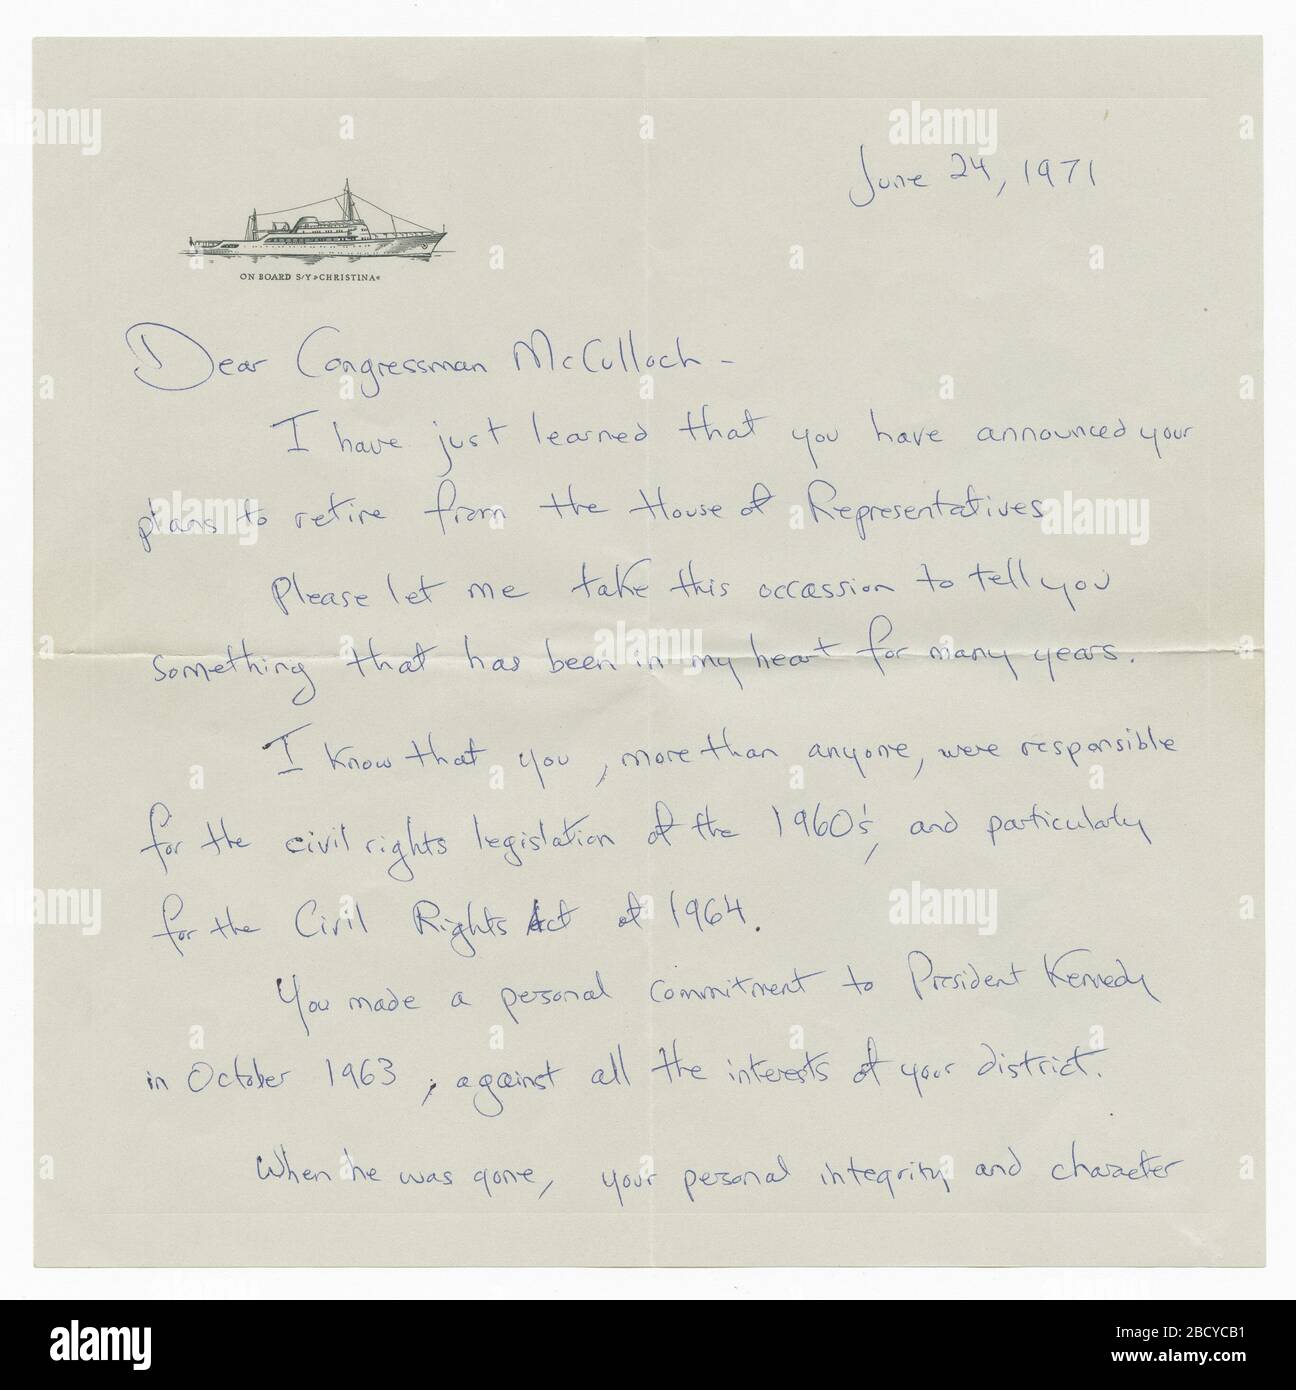 June 24, 1971
ON BOARD S/Y »CHRISTINA«
Dear Congressman McCulloch –
I have just learned that you have announced your
plans to retire from the House of Representatives
Please let me take this occassion to tell you
something that has been in my heart for many years.
I know that you, more than anyone, were responsible
for the civil rights legislation of the 1960's, and particularly
for the Civil Rights Act of 1964.
You made a personal commitment to President Kennedy
in October 1963, against all the interests of your district.
When he was gone, your personal integrity and character
alamy
Image ID: 2BCYCB1
www.alamy.com